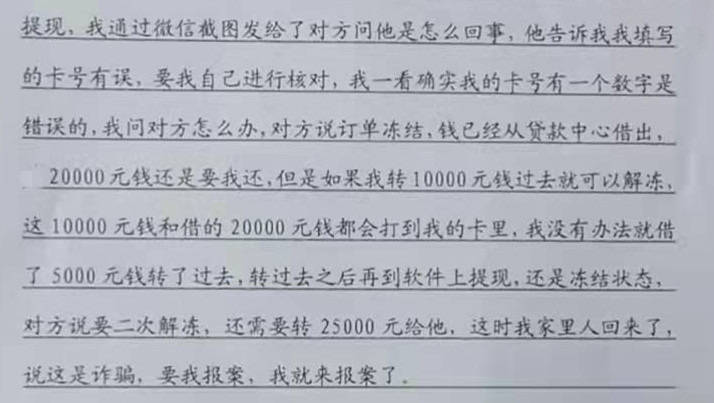 提现，我通过微信截图发给了对方问他是怎么回事，他告诉我我填写
的卡号有误，要我自己进行核对，我一看确实我的卡号有一个数字是
错误的，我问对方怎么办，对方说订单冻结，钱已经从贷款中心借出，
20000元钱还是要我还，但是如果我转10000元钱过去就可以解冻，
这10000元钱和借的20000元钱都会打到我的卡里，我没有办法就借
了5000元钱转了过去，转过去之后再到软件上提现，还是冻结状态，
对方说要二次解冻，还需要转25000元给他，这时我家里人回来了，
说这是诈骗，要我报案，我就来报案了。